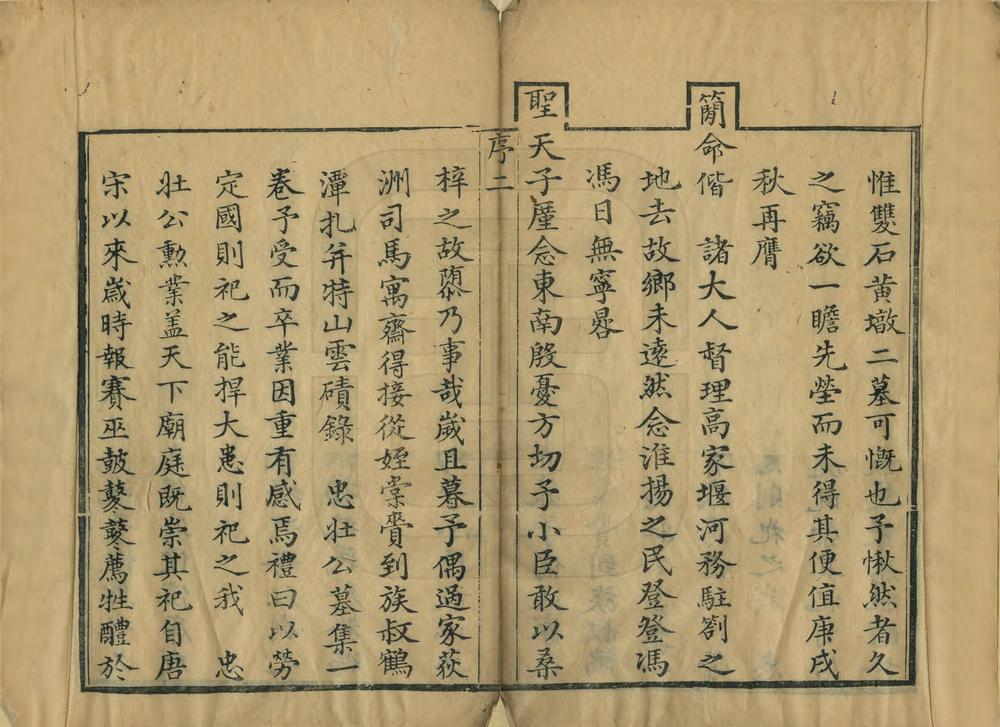 惟雙石黄墩二墓可慨也予愀然者久
之竊欲一瞻先塋而未得其便值庚戌
秋再膺
簡命偕 諸大人督理高家堰河務駐劄之
地去故鄉未遠然念淮揚之民登登馮
馮日無寧晷
聖天子廑念東南殷憂方切予小臣敢以桑
序二
梓之故隳乃事哉嵗且暮予偶過家荻
洲司馬寓齋得接從姪棠賫到族叔鶴
潭扎并特山雲磧錄 忠壯公墓集一
巻予受而卒業因重有感焉禮曰以勞
定國則祀之能捍大患則祀之我 忠
壯公勲業盖天下廟庭既崇其祀自唐
宋以來嵗時報賽巫鼓鼕鼕薦牲醴於